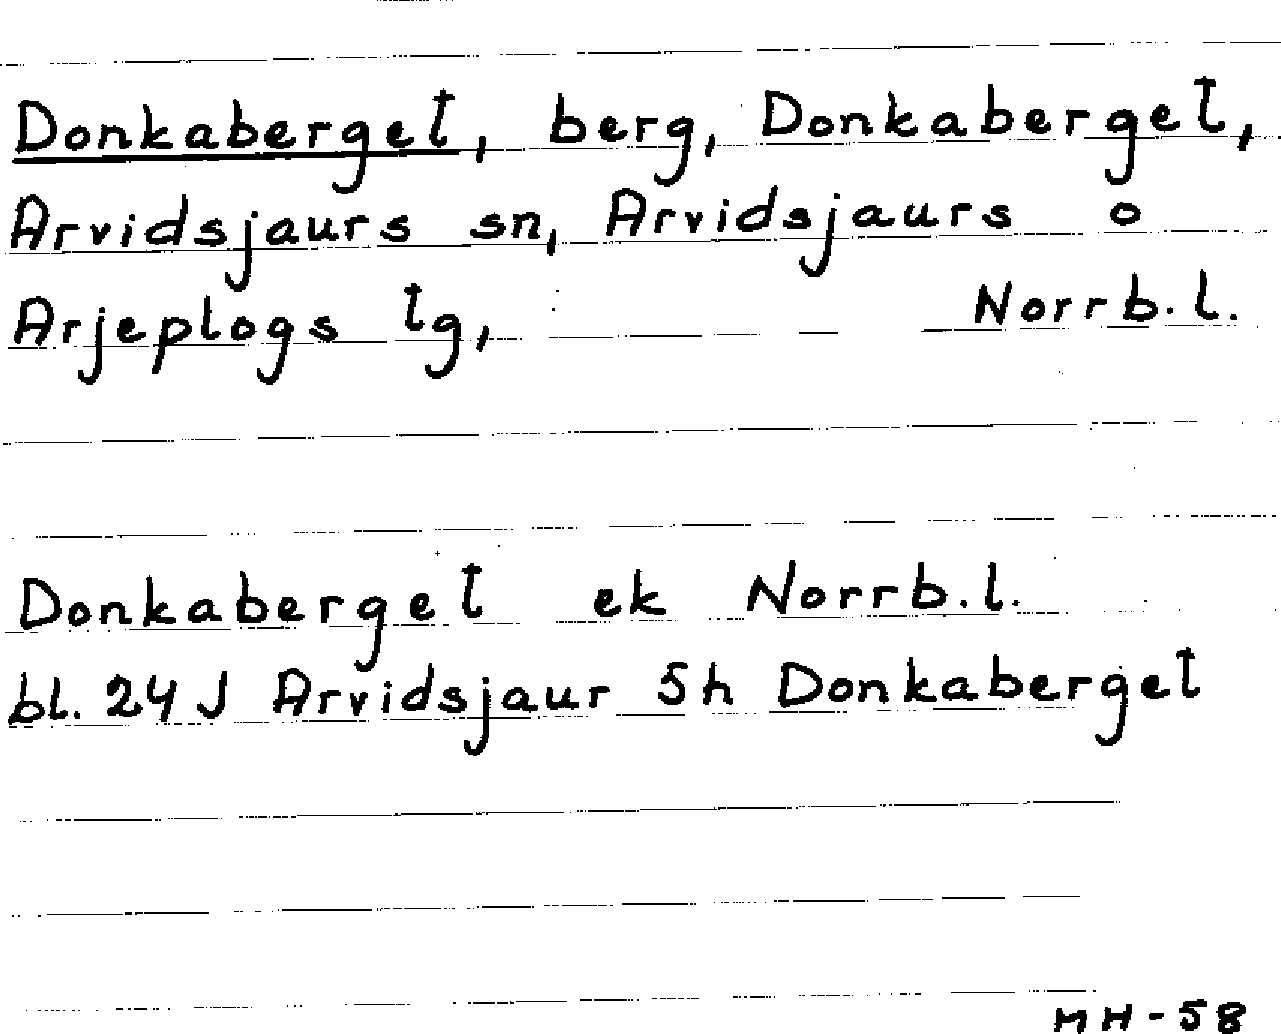 Donkaberget, berg, Donkaberget,
Arvidsjaurs sn, Arvidsjaurs o
Arjeplogs tg, Norrb.l.
Donkaberget ek Norrb.l.
bl. 24 J Arvidsjaur 5h Donkaberget
MH-58